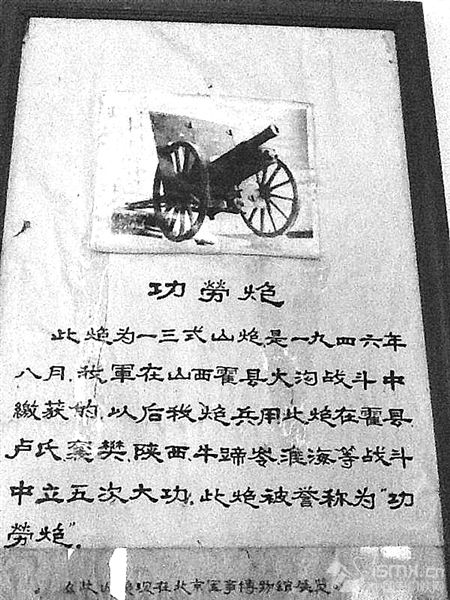 功勞炮
此炮为一三式山炮是一九四六年
八月.我軍在山西霍县大沟战斗中
繳获的.以后我炮兵用此炮在霍县
卢氏襄樊.陕西.牛蹄岺.淮海等战斗
中立五次大功.此炮被誉称为"功
勞炮".
此 炮现在北京军事博物館展览
ismx.cn